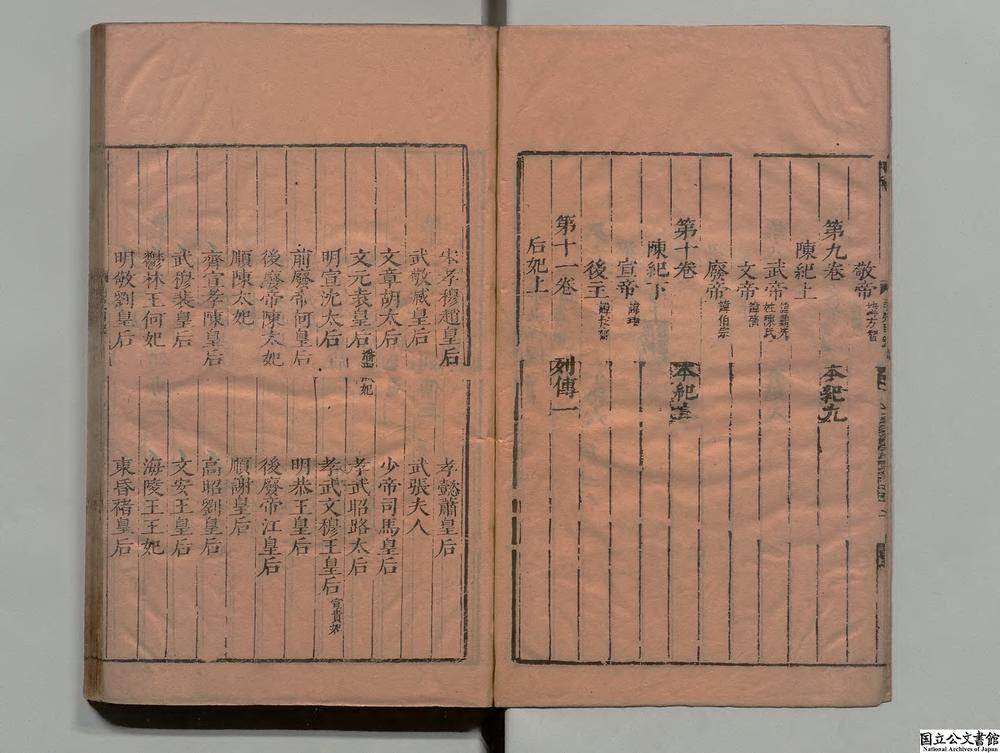 敬帝 諱方智
第九卷 本紀九
陳紀上
武帝 諱霸先 姓陳氏
文帝 諱蒨
廢帝 諱伯宗
第十卷 本紀
陳紀下
宣帝 諱頊
後主 諱叔寶
第十一卷 列傳一
后妃上
宋孝穆趙皇后 孝懿蕭皇后
武敬臧皇后 武張夫人
文章胡太后 少帝司馬皇后
文元袁皇后 妃 孝武昭路太后
明宣沈太后 孝武文穆王皇后 宣貴妃
前廢帝何皇后 明恭王皇后
後廢帝陳太妃 後廢帝江皇后
順陳太妃 順謝皇后
齊宣孝陳皇后 高昭劉皇后
武穆裴皇后 文安王皇后
鬱林王何妃 海陵王王妃
明敬劉皇后 東昏褚皇后
国立公文書館
National Archives of Japan